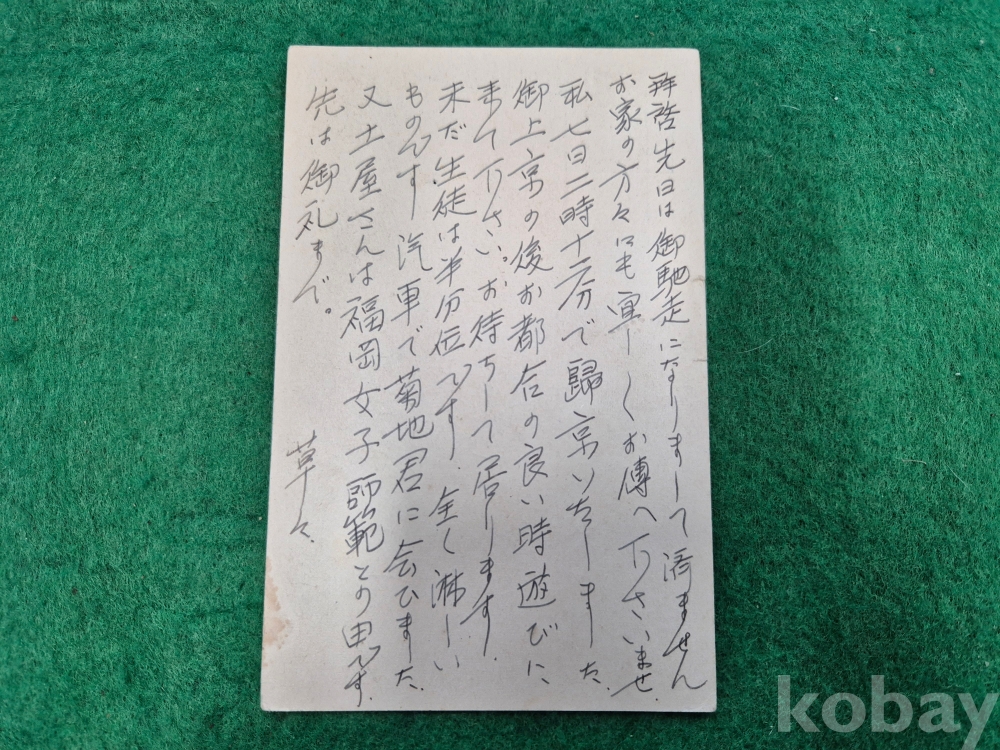 拝啓先日は御馳走になりまして済ません
お家の方々にも宜しくお傳へ下さいませ.
私七日二時十二分で歸京いたしました.
御上京の後お都合の良い時遊びに、
来て下さい。お待ちして居ります.
未だ生徒は半分位です. 全く淋しい
ものです 汽車で菊地君に会ひました.
又土屋さんは福岡女子師範との由です.
先は御礼まで。
草々.
kobay